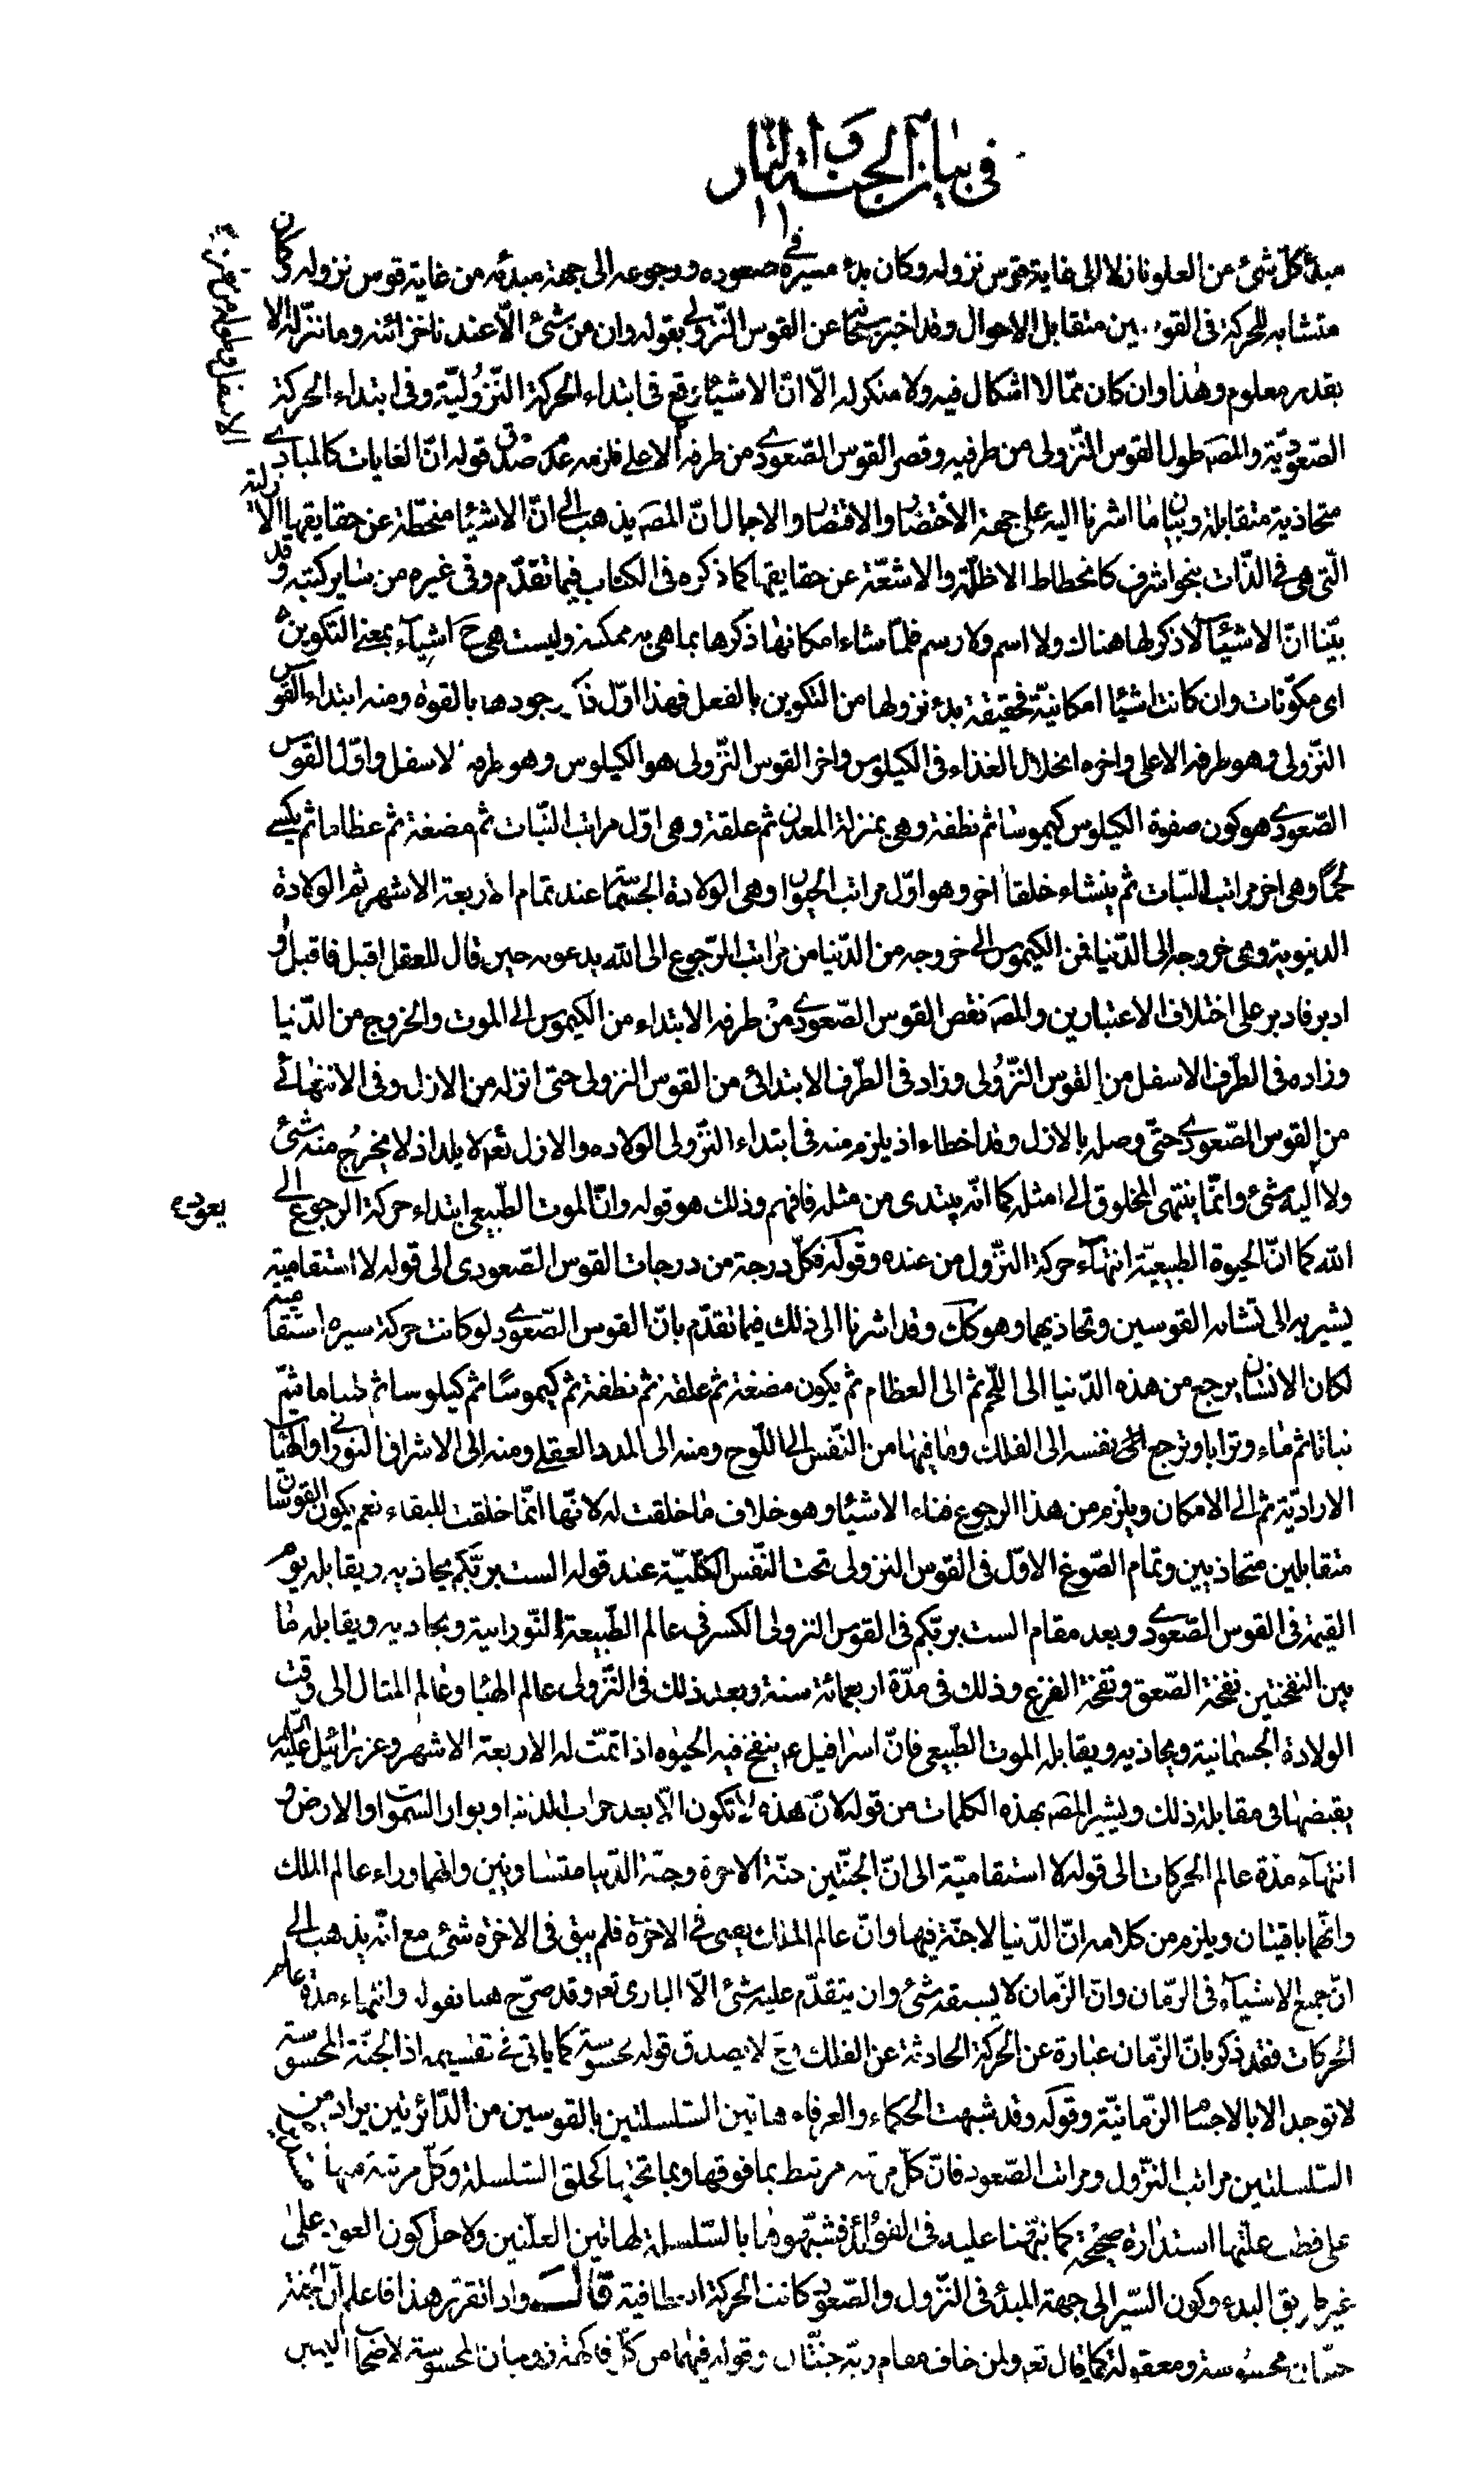 في بيان الجنة و النار
مبدء كلّ شئ من العلو نازلا الى غاية قوس نزوله وكان بدء مسيره في صعوده ورجوعه الى جهة مبدئه من غاية قوس نزوله وكان
متشابه الحركة فى القوسين متقابل الاحوال وقد اخبر سبحانه عن القوس النّزولي بقوله وان من شئ الّا عندنا خزائنه وما ننزّله الا
بقدر معلوم وهذا وان كان ممّا لا اشكال فيه ولا منكر له الّا انّ الاشياء يقع فى ابتداء الحركة النّزوليّة وفى ابتداء الحركة
الصّعوديّة والمصَ طول القوس النّزولى من طرفيه وقصر القوس الصّعودي من طرفه الاعلى فلزمه عدم صدق قوله انّ الغايات كالمبادي
متحاذية متقابلة وبيان ما اشرنا اليه على جهة الاختصار والاقتصار والاجمال انّ المصَ يذهب الى انّ الاشياء منحطّة عن حقايقها الازلية
الّتى هى فى الذّات بنحو اشرف كانحطاط الاظلّة والاشعّة عن حقايقها كما ذكره فى الكتاب فيما تقدّم وفى غيره من ساير كتبه وقد
بيّنا انّ الاشياء لا ذكر لها هناك ولا اسم ولا رسم فلمّا شاء امكانها ذكرها بما هى به ممكنة وليست هى حَ اشياء بمعنى التكوين
اى مكوّنات وان كانت اشياء امكانيّة فحقيقة بدء نزولها من التكوين بالفعل فهذا اوّل وجودها بالقوة ومنه ابتداء القوس
النّزولى وهو طرفه الاعلى واخره انحلال الغذاء فى الكيلوس واخر القوس النّزولى هو الكيلوس وهو طرفه الاسفل واوّل القوس
الصّعودي هو كون صفوة الكيلوس كيموسا ثم نطفة وهى بمنزلة المعدن ثم علقة وهى اوّل مراتب النّبات ثم مضغة ثم عظاما ثم يكسى
لحمًا وهى اخر مراتب النّبات ثم ينشاء خلقا اخر وهو اوّل مراتب الحيوان وهى الولادة الجسمانية عند تمام الاربعة الاشهر ثم الولادة
الدنيوية وهى خروجه الى الدّنيا فمن الكيموس الى خروجه من الدّنيا من مراتب الرّجوع الى الله بدعوته حين قال للعقل اقبل فاقبل او
ادبر فادبر على اختلاف الاعتبارين والمصَ نقص القوس الصّعودي من طرفه الابتداء من الكيموس الى الموت والخروج من الدّنيا
وزاده فى الطّرف الاسفل من القوس النّزولى وزاد فى الطّرف الابتدائى من القوس النزولى حتى انزله من الازل وفى الانتهائى
من القوس الصّعودي حتّى وصله بالازل وقد اخطاء اذ يلزم منه فى ابتداء النّزولى الولاده والازل تعَ لا يلد اذ لا يخرج منه شئ
ولا اليه شئ وانّما ينتهى المخلوق الى مثله كما انّه يبتدى من مثله فافهم وذلك هو قوله وانّ الموت الطّبيعى ابتداء حركة الرجوع الى
الله كما انّ الحيوة الطبيعيّة انتهاء حركة النّزول من عنده وقوله فكلّ درجة من درجات القوس الصّعودى الى قوله لا استقامية
يشير به الى تشابه القوسين وتحاذيهما وهو كك وقد اشرنا الى ذلك فيما تقدّم بانّ القوس الصّعودي لو كانت حركة سيره استقامية
لكان الانسان يرجع من هذه الدّنيا الى اللّحم ثم الى العظام ثم يكون مضغة ثم علقة ثم نطفة ثم كيموسًا ثم كيلوسا ثم طعاما ثمّ
نباتا ثم ماء وترابا وترجع نفسه الى الفلك وما فيها من النّفس الى اللّوح ومنه الى المدد العقلى ومنه الى الاشراق النوراني والهيئات
الاراديّة ثم الى الامكان ويلزم من هذا الرجوع فناء الاشياء وهو خلاف ما خلقت له لانّها انّما خلقت للبقاء نعم يكون القوسان
متقابلين متحاذيين وتمام الصّوغ الاوّل فى القوس النزولى تحت النّفس الكلّيّة عند قوله الست بربّكم يحاذيه ويقابله يوم
القيمة فى القوس الصّعودي وبعد مقام الست بربّكم فى القوس النزولى الكسر فى عالم الطّبيعة النّورانية ويحاذيه ويقابله ما
بين النفختين نفخة الصّعق ونفخة الفزع وذلك فى مدّة اربعمائة سنة وبعد ذلك فى النّزولى عالم الهباء وعالم المثال الى وقت
الولادة الجسمانية ويحاذيه ويقابله الموت الطّبيعى فانّ اسرافيل عَ ينفخ فيه الحيوه اذا تمّت له الاربعة الاشهر وعزرائيل عليه السلام
يقبضها فى مقابلة ذلك ويشير المصَ بهذه الكلمات من قوله لانّ هذه لا تكون الّا بعد خراب الدنيا وبوار السّموات والارض و
انتهاء مدّة عالم الحركات الى قوله لا استقاميّة الى انّ الجنّتين جنّة الاخرة وجنّة الدّنيا متساويين وانّهما وراء عالم الملك
وانّهما باقيتان ويلزم من كلامه انّ الدّنيا لا جنّة فيها وانّ عالم الملك يفنى في الاخرة فلم يبق فى الاخرة شئ مع انّه يذهب الى
انّ جميع الاشياء فى الزّمان وانّ الزّمان لا يسبقه شئ وان يتقدّم عليه شئ الّا البارى تعَ وقد صرّح هنا بقوله وانتهاء مدّة عالم
الحركات فقد ذكر بانّ الزّمان عبارة عن الحركة الحادثة عن الفلك وحَ لا يصدق قوله محسوسة كما ياتى في تقسيمه اذ الجنّة المحسوسة
لا توجد الا بالاجسام الزّمانيّة وقوله وقد شبهت الحكماء والعرفاء هاتين السّلسلتين بالقوسين من الدّائرتين يراد من
السّلسلتين مراتب النّزول ومراتب الصّعود فانّ كلّ مرتبة مرتبط بما فوقها وبما تحتها كحلق السّلسلة وكلّ مرتبة منها
على قطب علّتها استدارة صحيحة كما نبّهنا عليه فى الفوائد فشبّهوها بالسّلسلة لهاتين العلّتين ولاجل كون العود على
غير طريق البدء وكون السّير الى جهة المبدء فى النّزول والصّعود كانت الحركة انعطافية قال واذا تقرّر هذا فاعلم انّ الجنة
جنّتان محسوسة ومعقولة كما قال تعَ ولمن خاف مقام ربّه جنّتان وقوله فيهما من كلّ فاكهة زوجان المحسوسة لاصحاب اليمين
يعود